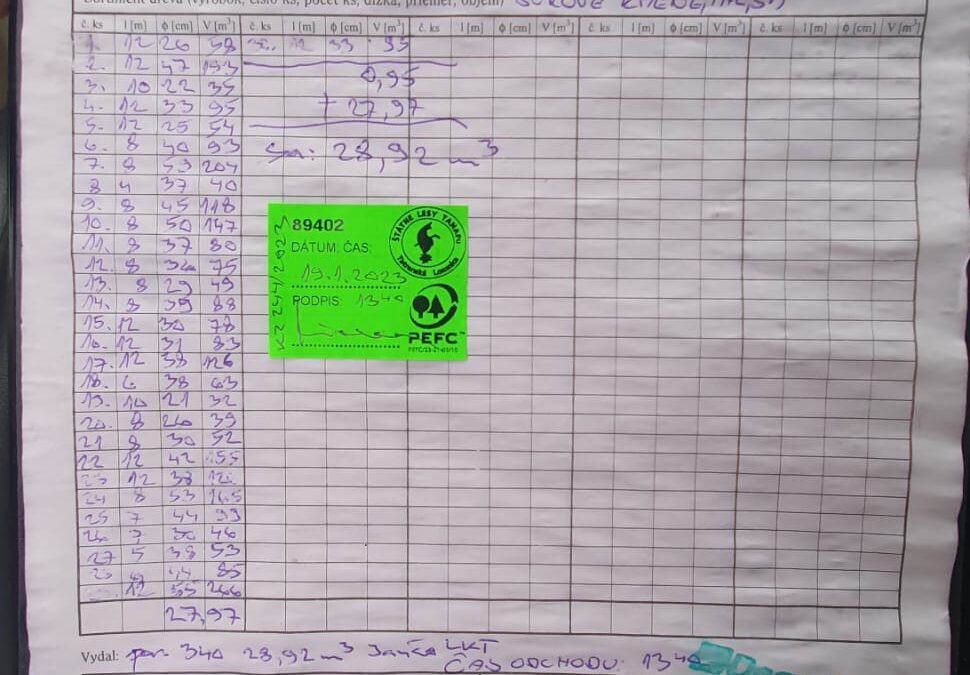 č. ks l [m] ϕ [cm] V [m³] č. ks l [m] ϕ [cm] V [m³] č. ks l [m] ϕ [cm] V [m³] č. ks l [m] ϕ [cm] V [m³] č. ks l [m] ϕ [cm] V [m³]
1. 12 26 58 30. 12 33 95
2. 12 47 193
0,95
3. 10 22 35
4. 12 33 95 + 27,97
5. 12 25 54
6. 8 40 93 Sa: 28,92 m³
7. 8 59 204
8 4 37 40
9. 8 45 118
10. 8 50 147
11. 8 37 80
12. 8 75
13. 8 29 49
14. 8 39 88
15. 12 30 78
16. 12 31 83
17. 12 38 126
18. 6 38 63
19. 10 21 32
20. 8 26 39
21 8 30 52
22 12 42 155
23 12 38
24 8 53 165
25 7 44 99
26 7 30 46
27 5 38 53
44 85
12 55 266
27,97
89402
DÁTUM: ČAS:
19.1.2023
PODPIS: 13⁴⁰
ŠTÁTNE LESY TANAPU
Tatranská Lomnica
PEFC™
Vydal: por. 340 28,92 m³ LKT
ČAS ODCHODU: 13⁴⁰